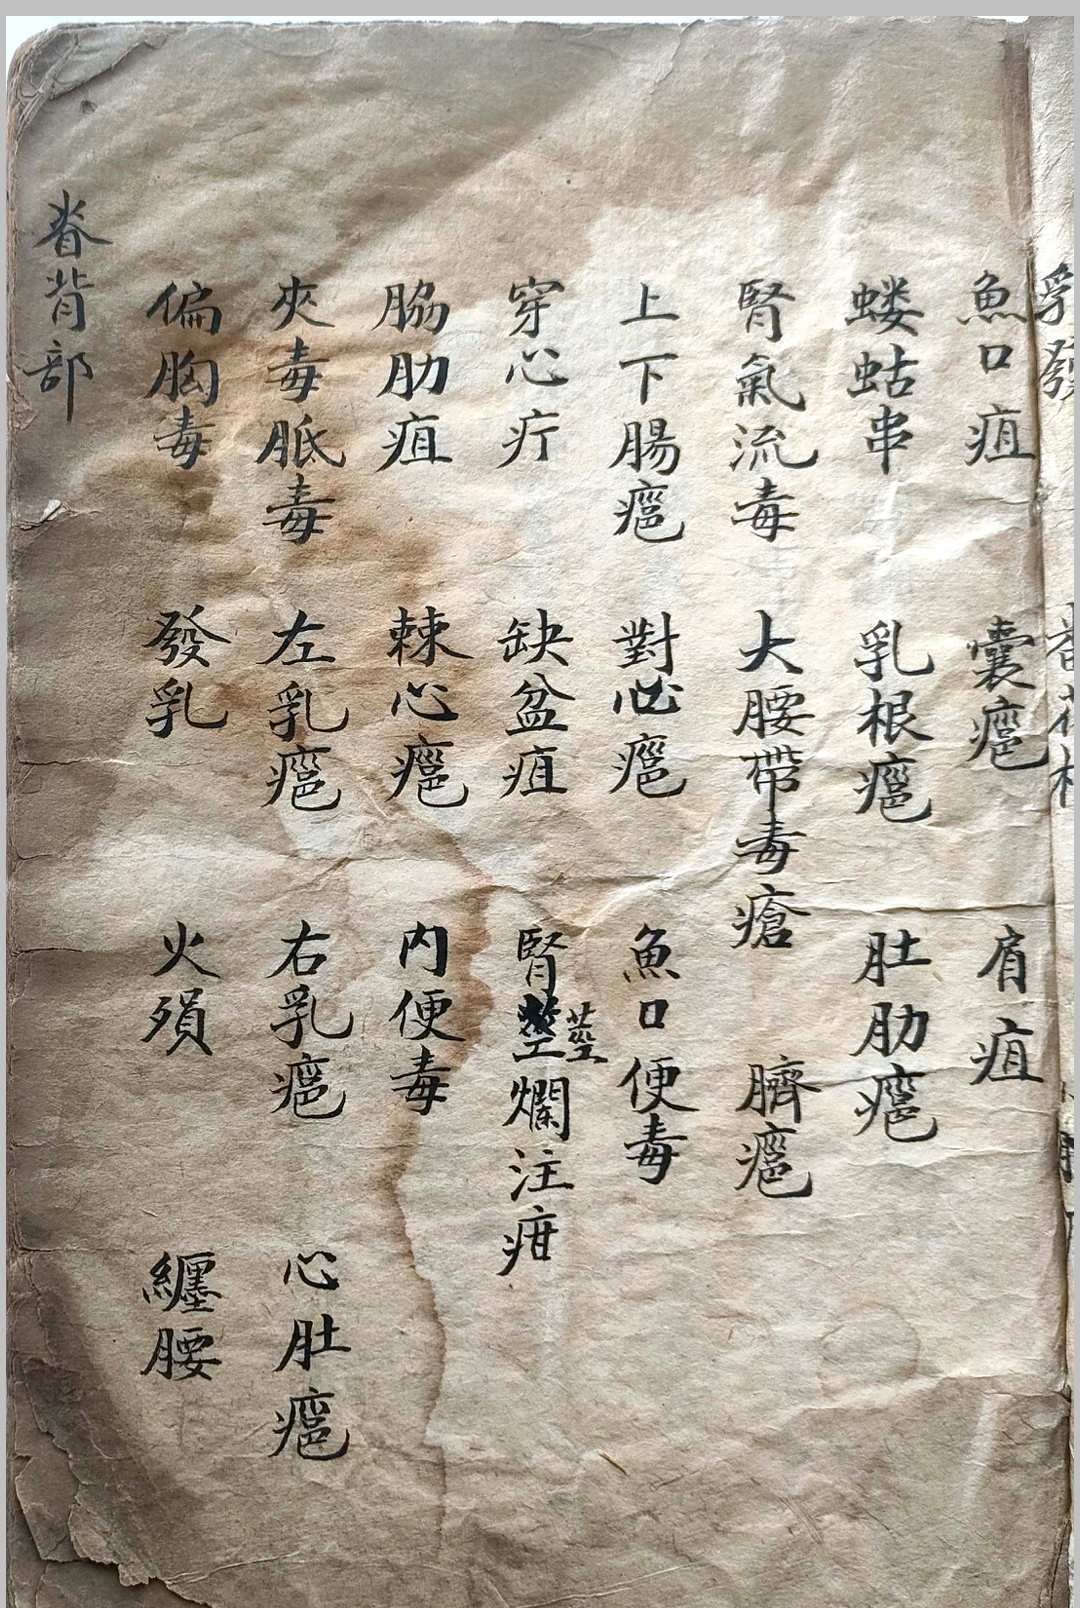 乳發
魚口疽 囊癰 肩疽
蝼蛄串 乳根癰 肚肋癰
腎氣流毒 大腰帶毒瘡 臍癰
上下腸癰 對心癰 魚口便毒
穿心疔 缺盆疽 腎莖爛注疳
脇肋疽 棘心癰 内便毒
夾毒胝毒 左乳癰 右乳癰 心肚癰
偏胸毒 發乳 火殞 纒腰
脊背部